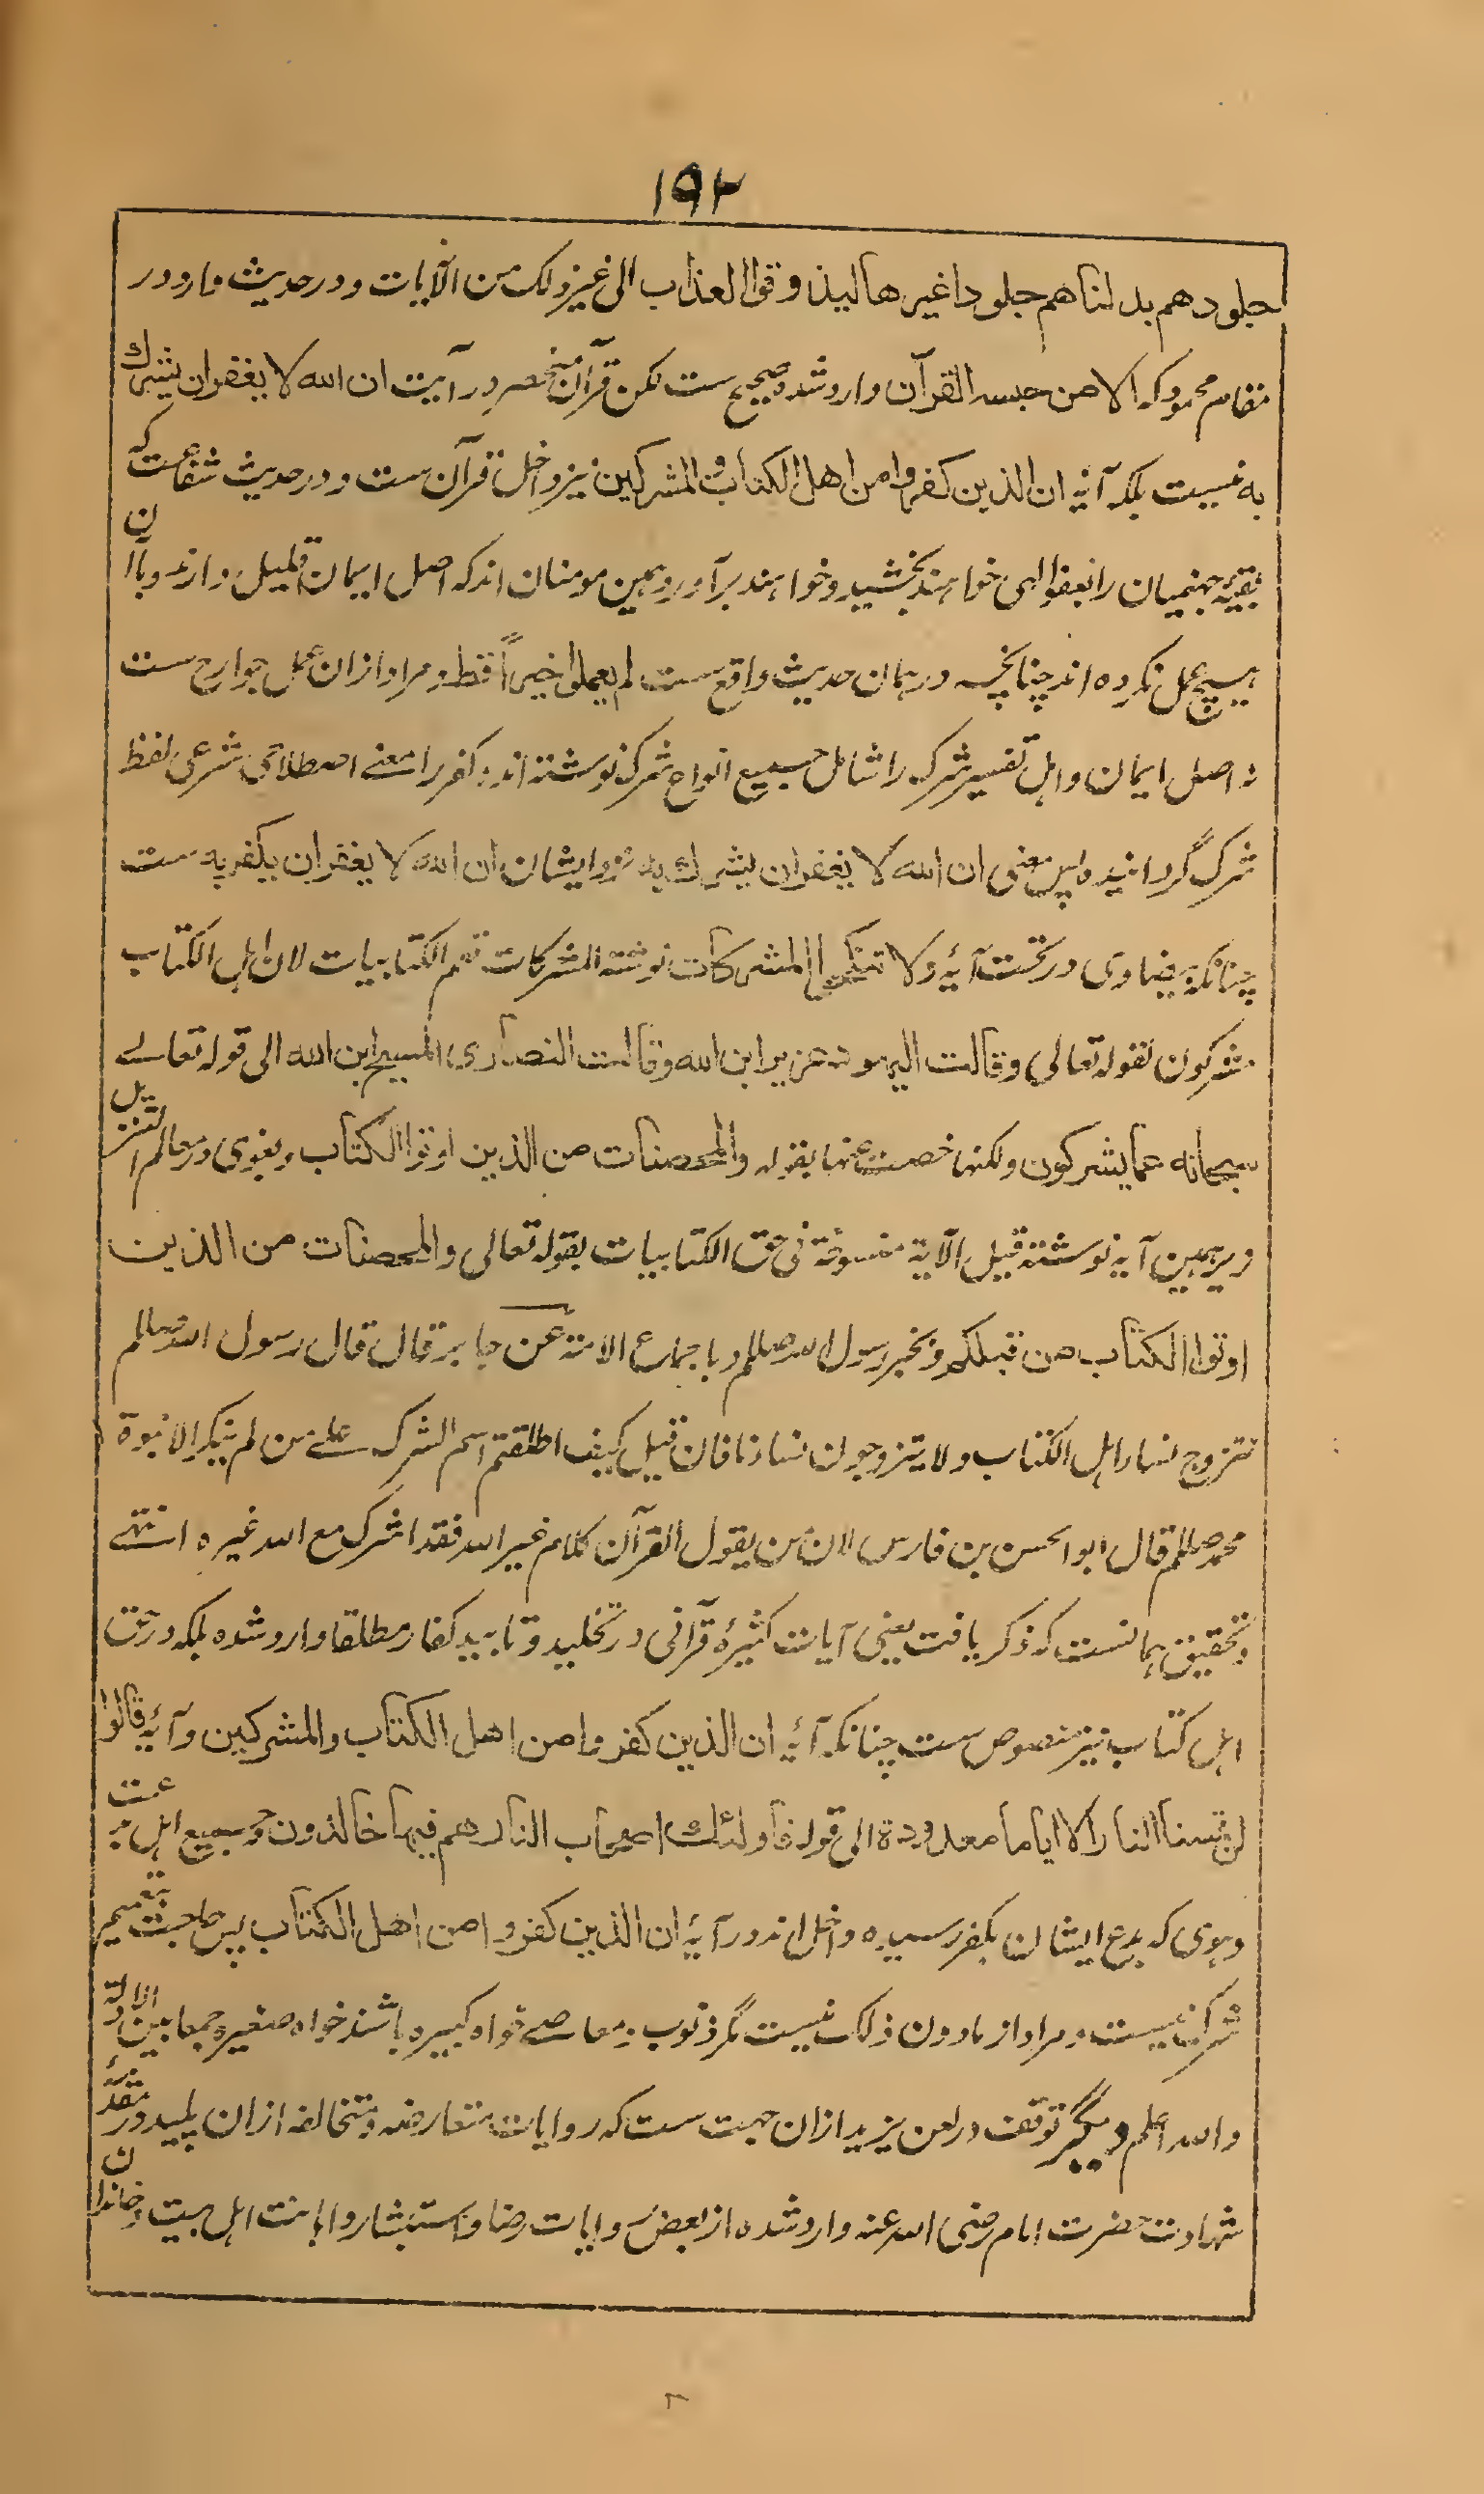 ۱۹۲
جلودهم بدلناهم جلودا غیرها لیذوقوا العذاب الی غیر ذلک من الآیات و در حدیث ما رو در
مقام محمود که الا من حبسه القرآن وارد شده صحیح ست لکن قرآن منحصر در آیت ان الله لا یغفر ان یشرک
به نیست بلکه آیۀ ان الذین کفروا من اهل الکتاب و المشرکین نیز داخل قرآن ست و در حدیث شفاعت که
بقیۀ جهنمیان را بعفو الهی خواهند بخشید و خواهند برآورد و همین مومنان اند که اصل ایمان قلیل دارند و با آن
هیچ عمل نکرده اند چنانچه در همان حدیث واقع ست لم یعملوا خیراً قط و مراد ازان عمل جوارح ست
نه اصل ایمان و اهل تفسیر شرک را شامل جمیع انواع شرک نوشته اند کفر را معنے اصطلاحی شرعی لفظ
شرک گردانیده پس معنی ان الله لا یغفر ان یشرک به نزد ایشان ان الله لا یغفر ان یکفر به ست
چنانکه بیضاوی در تحت آیۀ ولا تنکحوا المشرکات نوشته المشرکات تعم الکتابیات لان اهل الکتاب
مشرکون لقوله تعالی وقالت الیهود عزیر ابن الله وقالت النصاری المسیح ابن الله الی قوله تعالے
سبحانه عما یشرکون ولکنها خصت عنها بقوله والمحصنات من الذین اوتوا الکتاب و بغوی در معالم التنزیل
زیر همین آیه نوشته قیل الآیة منسوخة فی حق الکتابیات بقوله تعالی والمحصنات من الذین
اوتوا الکتاب من قبلکم و بخبر رسول الله صللم و باجماع الامة عن جابر قال قال رسول الله صللم
نتزوج نساء اهل الکتاب ولا یتزوجون نساءنا فان قیل کیف اطلقتم اسم الشرک علے من لم ینکر الا نبوة
محمد صللم قال ابو الحسن بن فارس لان من یقول القرآن کلام غیر الله فقد اشرک مع الله غیره انتهے
و تحقیق همانست که ذکر یافت یعنی آیات کثیرۀ قرآنی در تخلید و تابید کفار مطلقا وارد شده بلکه در حق
اهل کتاب نیز منصوص ست چنانکه آیۀ ان الذین کفروا من اهل الکتاب والمشرکین و آیۀ قالوا
لن تمسنا النار الا ایاما معدودة الی قوله فاولئک اصحاب النار هم فیها خالدون و جمیع اهل بدعت
و هوی که بدع ایشان بکفر رسیده داخل اند در آیۀ ان الذین کفروا من اهل الکتاب پس حاجت تعمیم
شرک نیست و مراد از مادون ذلک نیست مگر ذنوب و معاصے خواه کبیره باشند خواه صغیره جمعا بین الادلة
والله اعلم و دیگر توقف در لعن یزید ازان جهت ست که روایات متعارضه و متخالفه ازان پلید در مقدمۀ
شهادت حضرت امام رضی الله عنه وارد شده از بعض روایات رضا و استبشار و اهانت اهل بیت و خاندان